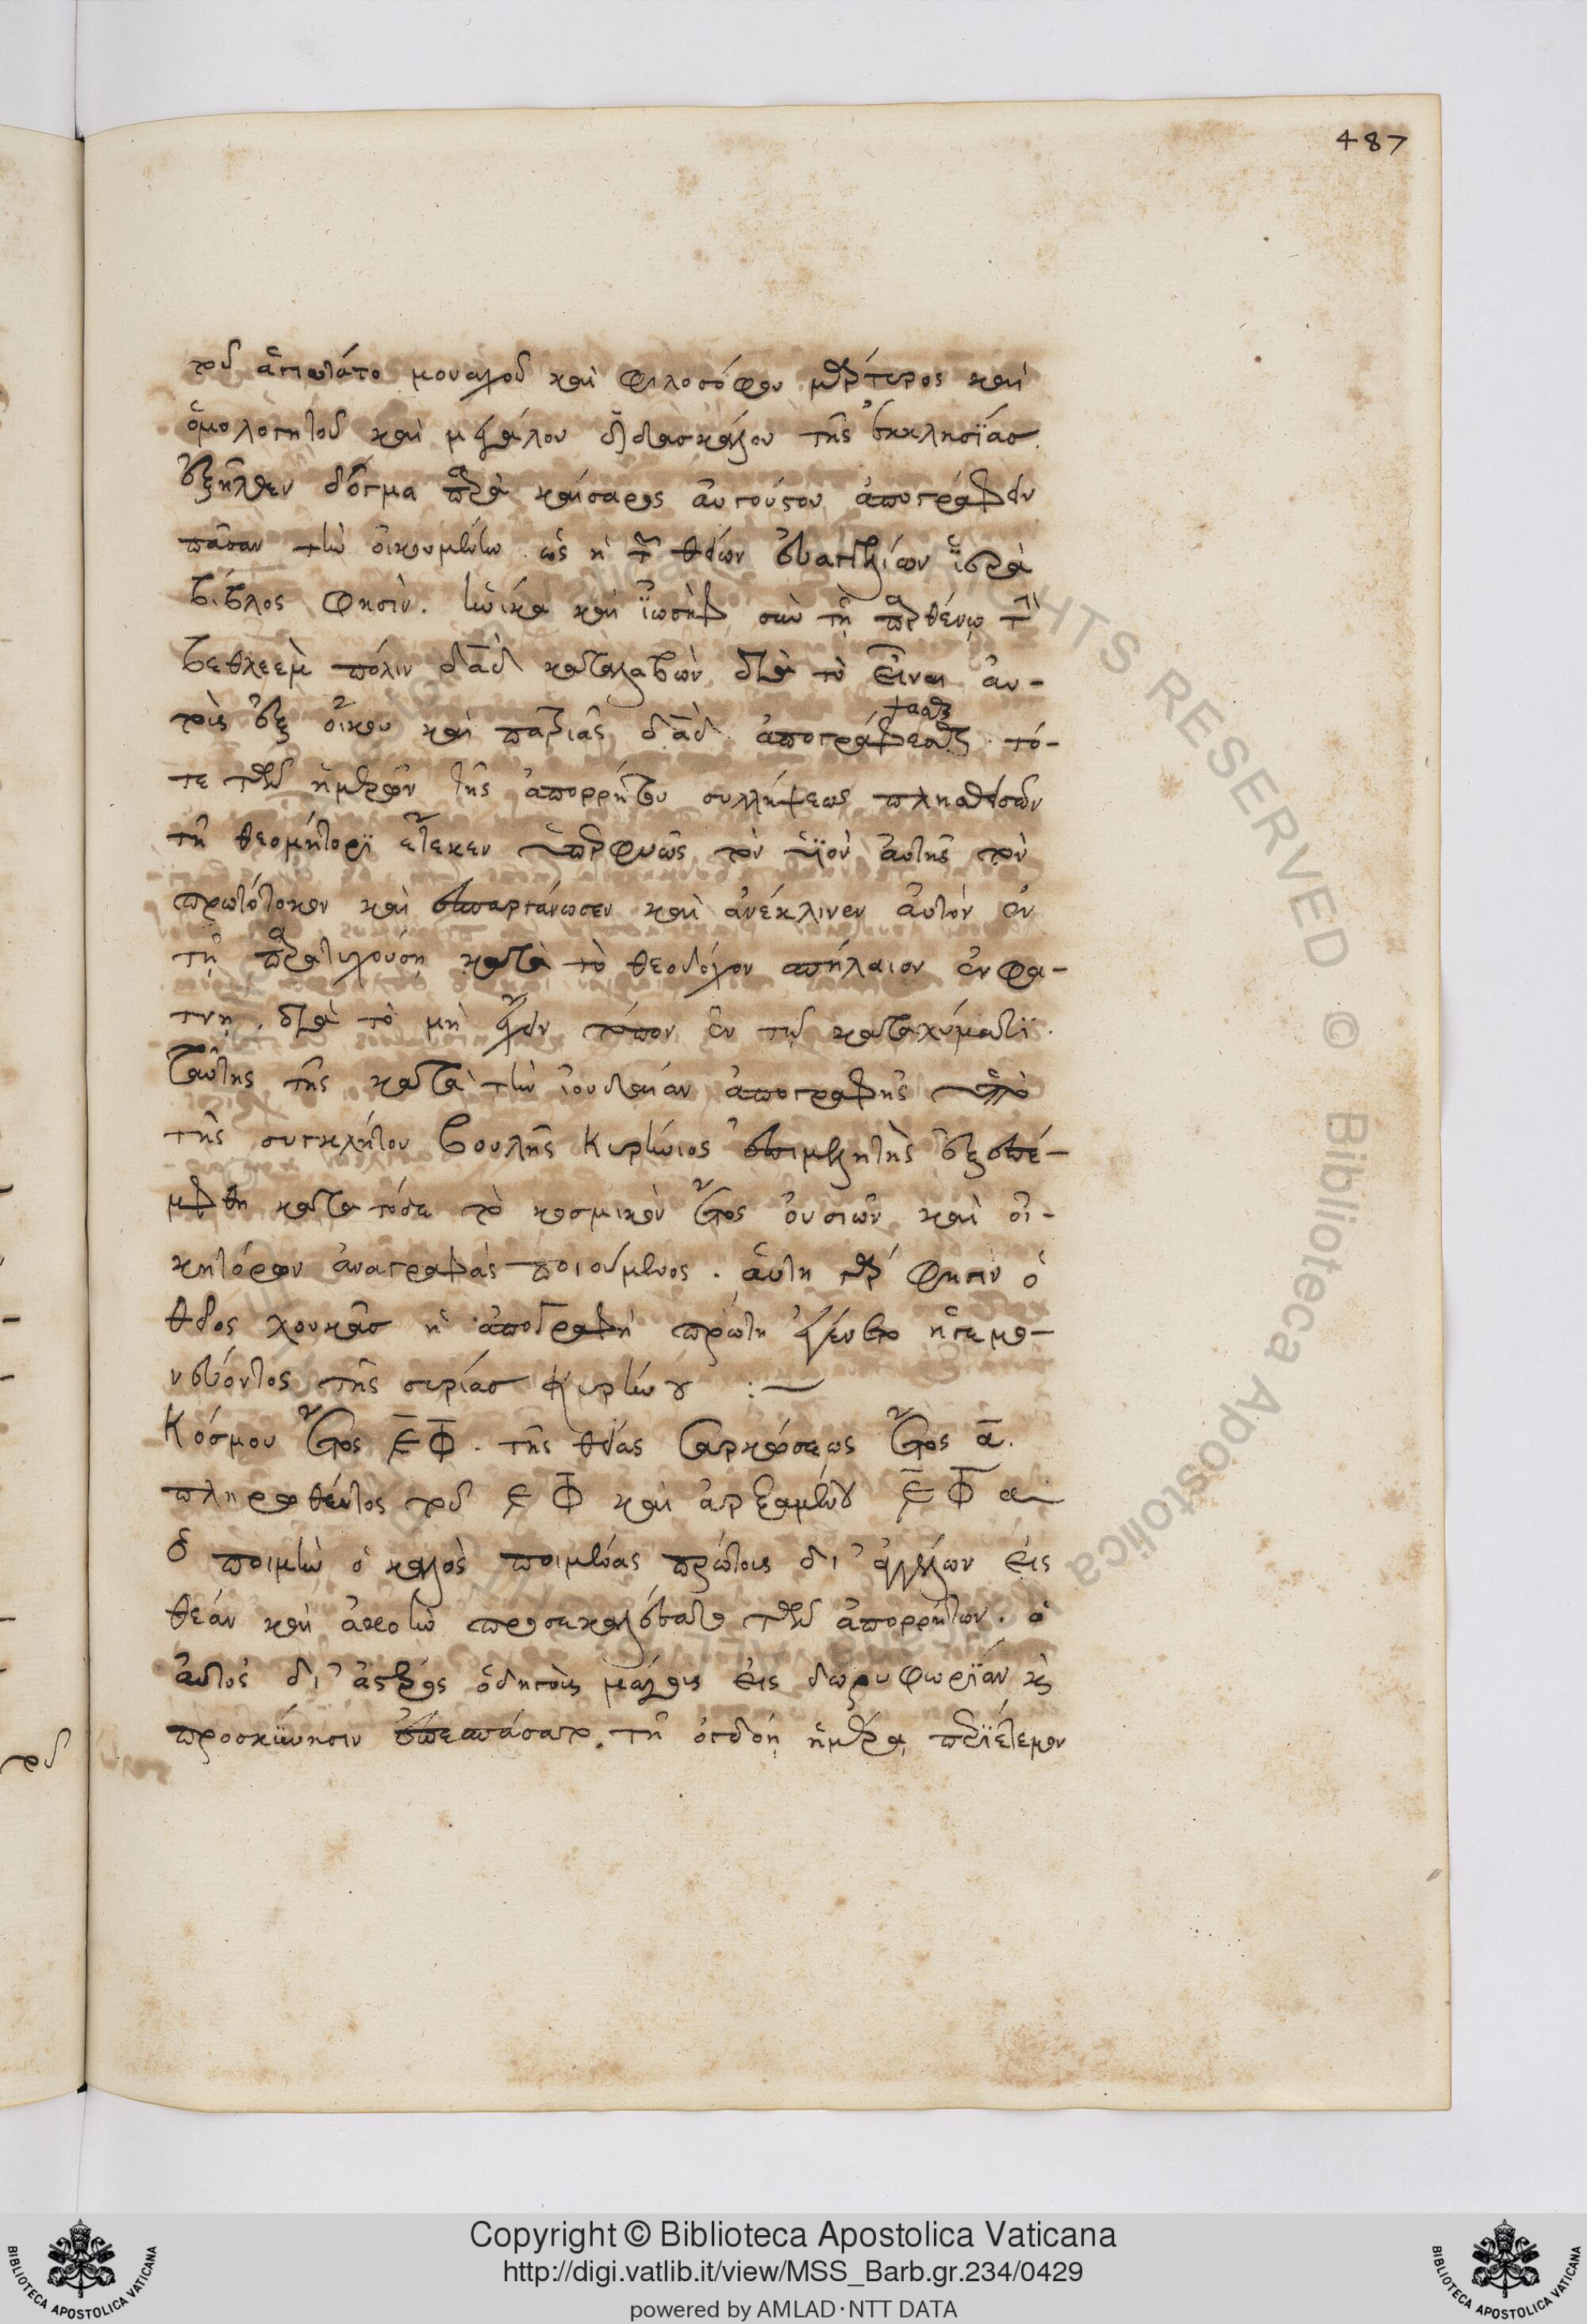 487
τοῦ ἁγιωτάτο μοναχοῦ καὶ φιλοσόφου μάρτυρος καὶ
ὁμολογητοῦ καὶ μεγάλου διδασκάλου τῆς ἐκκλησίας.
ἐξῆλθεν δόγμα παρὰ καίσαρος αὐγούστου ἀπογράφειν
πᾶσαν τὴν οἰκουμένην. ὡς ἡ τῶν θείων εὐαγγελίων ἱερὰ
βίβλος φησὶν. ἡνίκα καὶ ἰωσὴφ σὺν τῇ παρθένῳ τὴν
βεθλεεμ πόλιν δαδ καταλαβὼν διὰ τὸ εἶναι αὐ-
τοὺς ἐξ οἴκου καὶ πατριᾶς δαδ ἀπογράφεσθαι. τό-
τε τῶν ἡμερῶν τῆς ἀπορρήτου συλλήψεως πλησθεισῶν
τῇ θεομήτορϊ ἔτεκεν ὑπερφυῶς τὸν ὑϊὸν αὐτῆς τὸν
πρωτότοκον καὶ ἐσπαργάνωσεν καὶ ἀνέκλινεν αὐτὸν ἐν
τῇ παρατυχούσῃ κατὰ τὸ θεοδόχον σπήλαιον ἐν φα-
τνῃ. διὰ τὸ μὴ ἔχειν τόπον ἐν τῷ καταλύματϊ.
Ταύτης τῆς κατὰ τὴν ἰουδαίαν ἀπογραφῆς ὑπὸ
τῆς συγκλήτου βουλῆς Κυρήνιος ἐπιμελητὴς ἐξεπέ-
μφθη κατα τόδε τὸ κοσμικὸν ἔτος οὐσιῶν καὶ οἰ-
κητόρων ἀναγραφὰς ποιούμενος. αὕτη γάρ φησιν ὁ
θεῖος λουκᾶσ ἡ ἀπογραφὴ πρώτη ἐγένετο ἡγεμο-
νεύοντος τῆς συρίασ κυρηνίου :—
Κόσμου ἔτος ͵ΕΦ. τῆς θείας σαρκώσεως ἔτος α.
πληρωθέντος τοῦ ͵ΕΦ καὶ ἀρξαμένου ͵ΕΦα
Ὁ ποιμὴν ὁ καλὸς ποιμένας πρώτους δι' ἀγγέλων εἰς
θεάν καὶ ἀκοὴν προσεκαλέσατο τῶν ἀπορρήτων. ὁ
αὐτὸς δι' ἀστέρος ὁδηγοῦ μάγους εἰς δωρυφωρϊάν κὶ
προσκύνησιν ἐπεσπάσατο. τῇ ὀγδόῃ ἡμέρᾳ περϊέτεμον